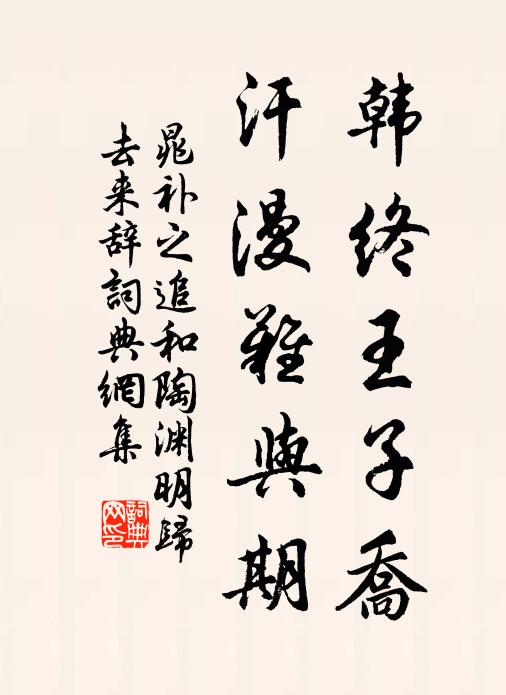 韩终王子乔
汗漫难与期
晁补之追和陶渊明歸
去来辞詞典網集
詞典
网印